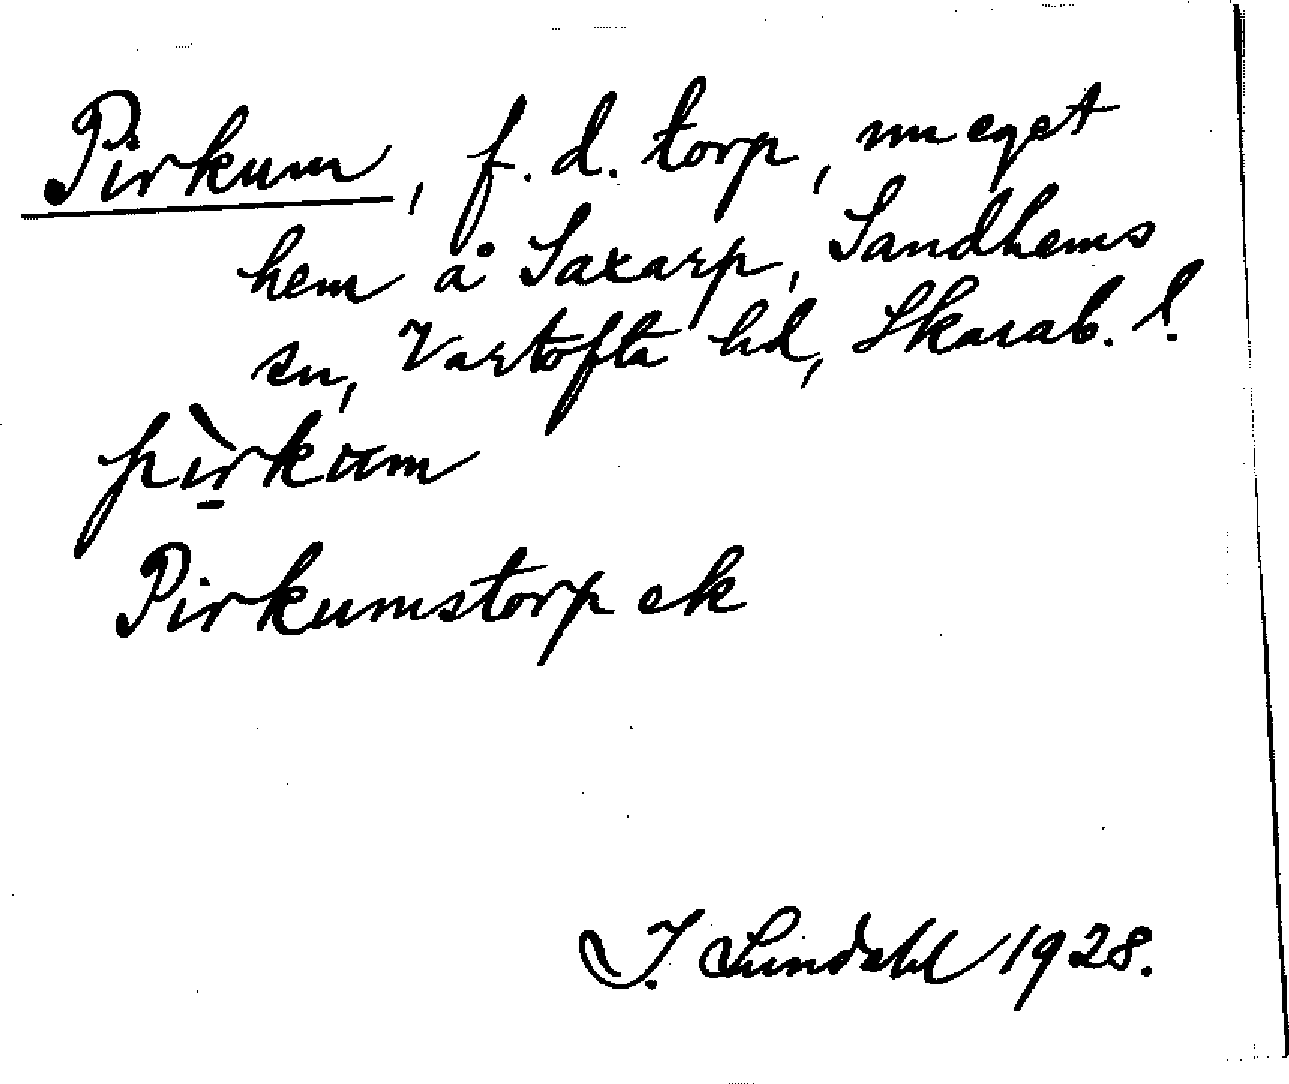 Pirkum, f. d. torp, nu eget
hem å Saxarp, Sandhems
sn, Vartofta hd, Skarab. l.
pìrkum
Pirkumstorp ek
I. Lundahl 1928.